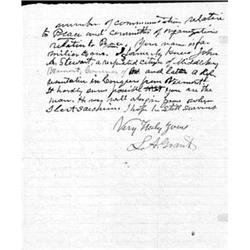 number of communication relative
to Peace and committee of organizations
relative to Peace. Your name is fa-
miliar to me. I formerly knew John
A. Stewart, a respected citizen of Middlebury
Vermont, Governor of and later a Rep-
resentative in Congress from Vermont.
It hardly seems possible that you are the
man. He was tall
I hope he still survives
Very Truly Yours
L. A. Grant